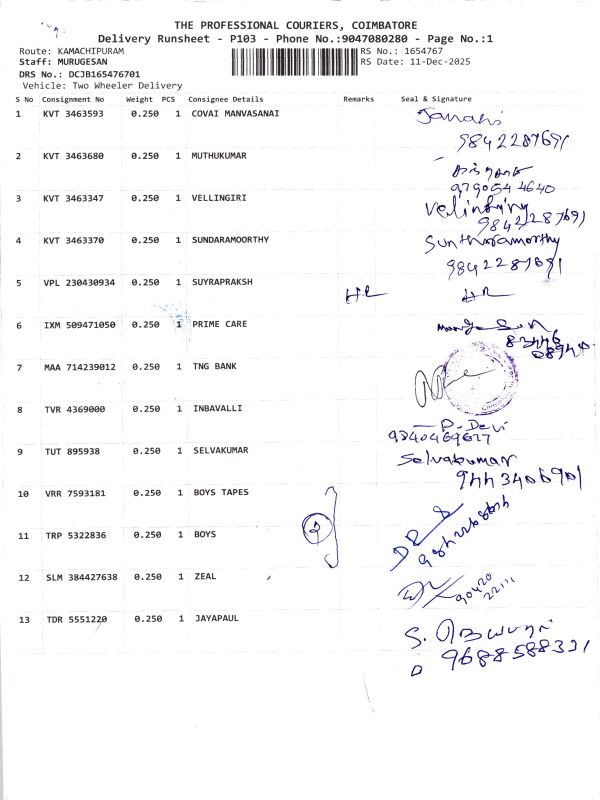 THE PROFESSIONAL COURIERS, COIMBATORE
Delivery Runsheet - P103 - Phone No.:9047080280 - Page No.:1
Route: KAMACHIPURAM RS No.: 1654767
Staff: MURUGESAN RS Date: 11-Dec-2025
DRS No.: DCJB165476701
Vehicle: Two Wheeler Delivery
S No Consignment No Weight PCS Consignee Details Remarks Seal & Signature
1 KVT 3463593 0.250 1 COVAI MANVASANAI Janaki
9842287691
2 KVT 3463680 0.250 1 MUTHUKUMAR
9790544640
3 KVT 3463347 0.250 1 VELLINGIRI
9842287691
4 KVT 3463370 0.250 1 SUNDARAMOORTHY Suntharamorthy
9842287691
5 VPL 230430934 0.250 1 SUYRAPRAKSH
6 IXM 509471050 0.250 1 PRIME CARE
7 MAA 714239012 0.250 1 TNG BANK
8 TVR 4369000 0.250 1 INBAVALLI P. Devi
9 TUT 895938 0.250 1 SELVAKUMAR Selvakumar
9443406901
10 VRR 7593181 0.250 1 BOYS TAPES
11 TRP 5322836 0.250 1 BOYS
12 SLM 384427638 0.250 1 ZEAL
13 TDR 5551220 0.250 1 JAYAPAUL
9688588331